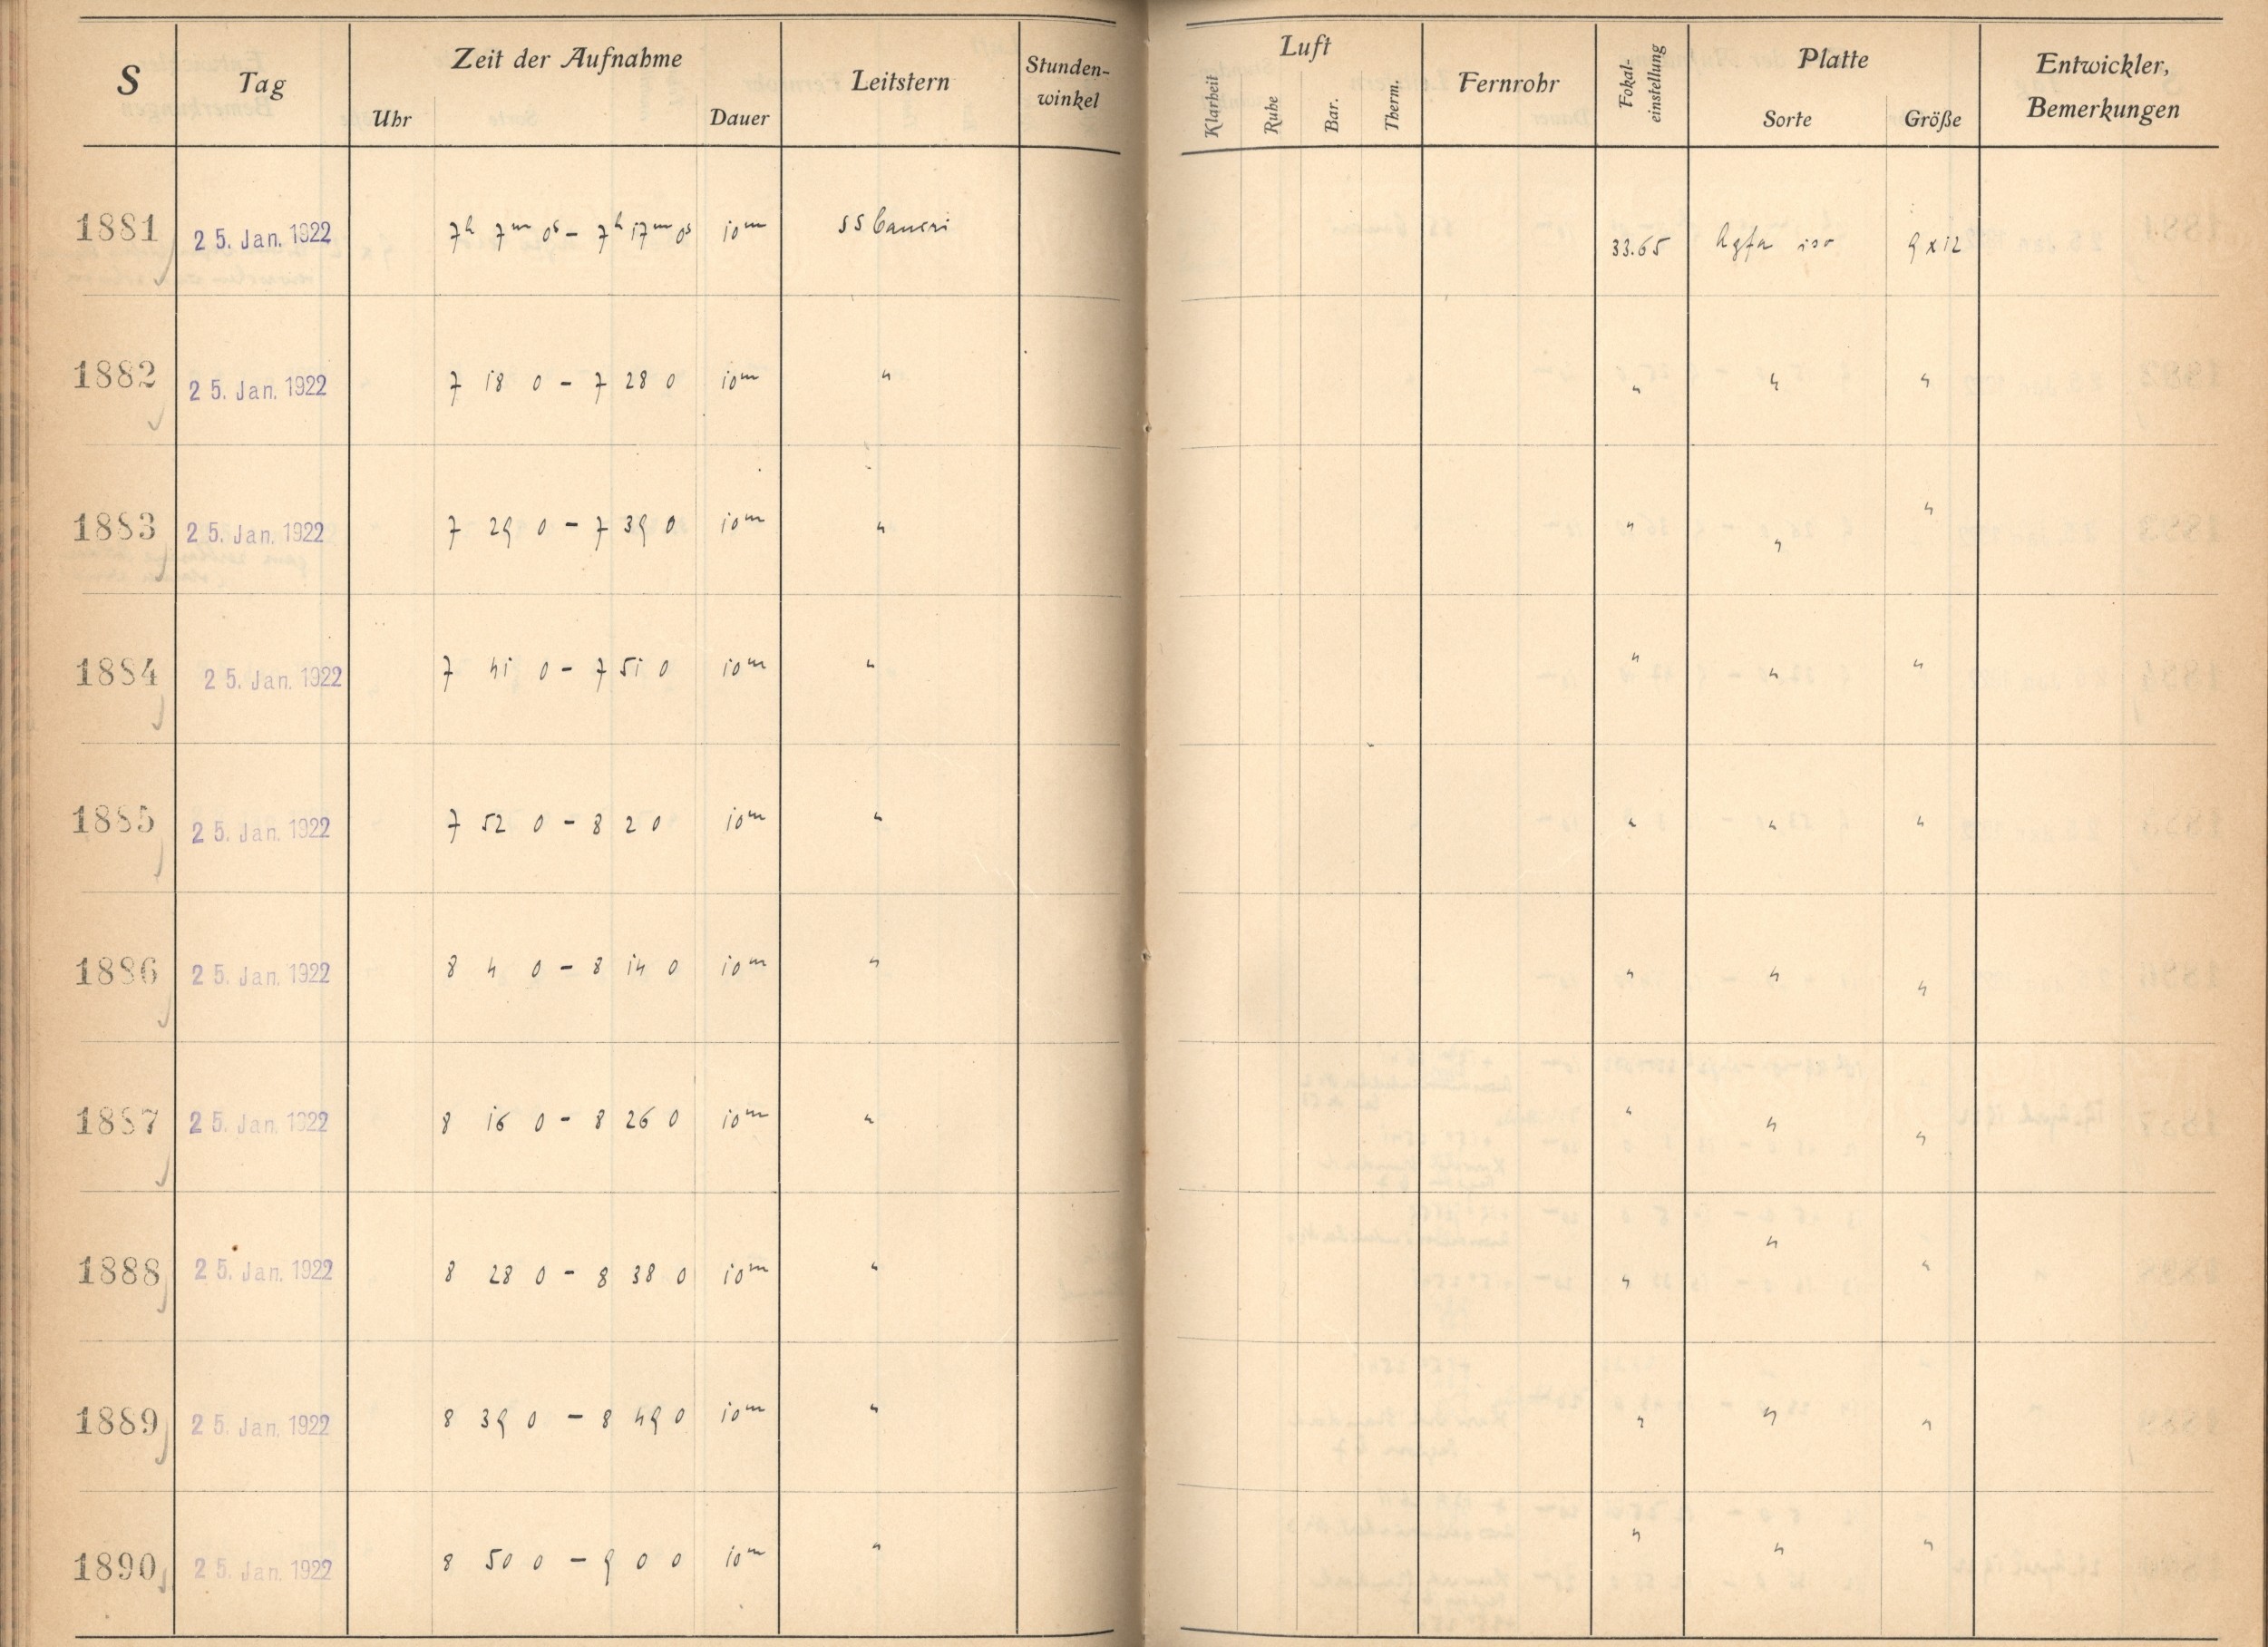 S Tag Zeit der Aufnahme Leitstern Stunden-winkel Luft Fernrohr Fokal-einstellung Platte Entwickler, Bemerkungen
Uhr Dauer Klarheit Ruhe Bar. Therm. Sorte Größe
1881 25. Jan. 1922 7h 7m 0s – 7h 17m 0s 10m SS Cancri 33.65 Agfa iso 9x12
1882 25. Jan. 1922 7 18 0 – 7 28 0 10m " " " "
1883 25. Jan. 1922 7 29 0 – 7 39 0 10m " " " "
1884 25. Jan. 1922 7 41 0 – 7 51 0 10m " " " "
1885 25. Jan. 1922 7 52 0 – 8 2 0 10m " " " "
1886 25. Jan. 1922 8 4 0 – 8 14 0 10m " " " "
1887 25. Jan. 1922 8 16 0 – 8 26 0 10m " " " "
1888 25. Jan. 1922 8 28 0 – 8 38 0 10m " " " "
1889 25. Jan. 1922 8 39 0 – 8 49 0 10m " " " "
1890 25. Jan. 1922 8 50 0 – 9 0 0 10m " " " "